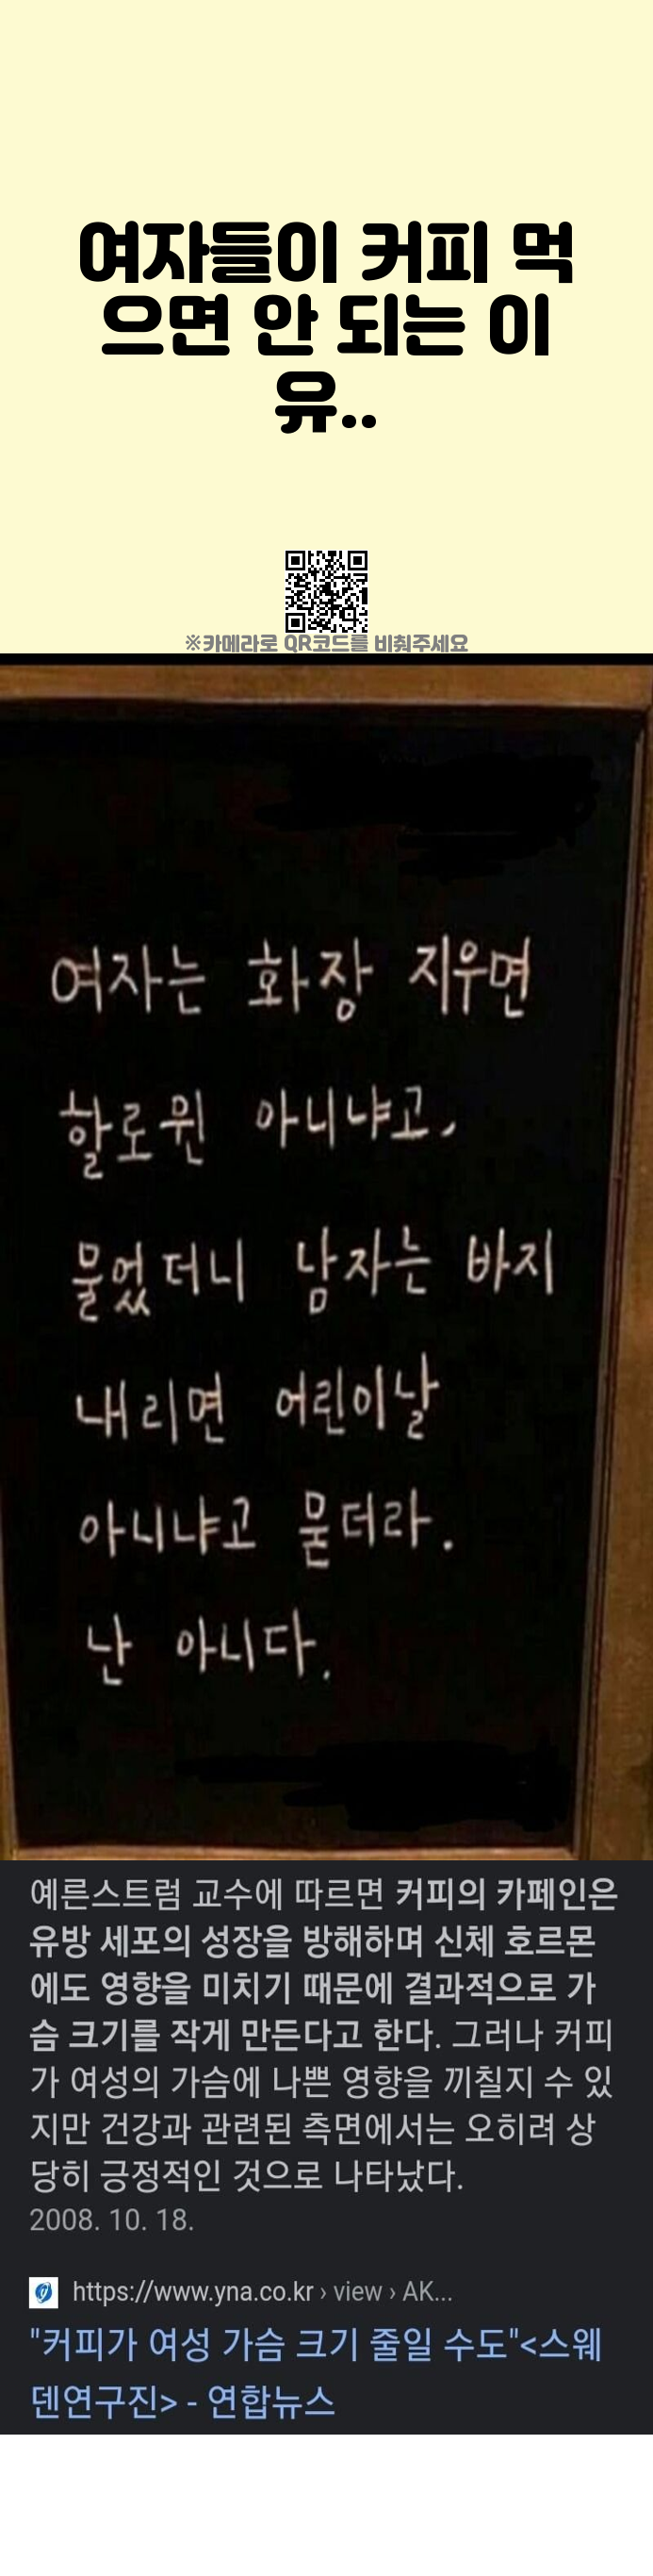 여자들이 커피 먹
으면 안 되는 이
유..
※카메라로 QR코드를 비춰주세요
여자는 화장 지우면
할로윈 아니냐고,
물었더니 남자는 바지
내리면 어린이날
아니냐고 묻더라.
난 아니다.
예른스트럼 교수에 따르면 커피의 카페인은
유방 세포의 성장을 방해하며 신체 호르몬
에도 영향을 미치기 때문에 결과적으로 가
슴 크기를 작게 만든다고 한다. 그러나 커피
가 여성의 가슴에 나쁜 영향을 끼칠지 수 있
지만 건강과 관련된 측면에서는 오히려 상
당히 긍정적인 것으로 나타났다.
2008. 10. 18.
https://www.yna.co.kr › view › AK...
"커피가 여성 가슴 크기 줄일 수도"<스웨
덴연구진> - 연합뉴스